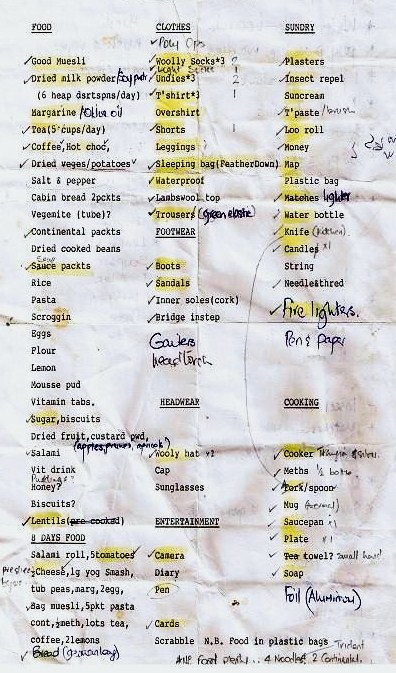 FOOD
Good Muesli
Dried milk powder/Soy milk
(6 heap dsrtspns/day)
Margarine/Olive oil
Tea(5 cups/day)
Coffee,Hot choc,
Dried veges/potatoes
Salt & pepper
Cabin bread 2pckts
Vegemite (tube)?
Continental packts
Dried cooked beans
Sauce packts
Rice
Pasta
Scroggin
Eggs
Flour
Lemon
Mousse pud
Vitamin tabs.
Sugar,biscuits
Dried fruit,custard pwd,
(apples, prunes, apricots)
Salami
Vit drink
Puddings?
Honey?
Biscuits?
Lentils(pre cooked)
8 DAYS FOOD
Salami roll,5tomatoes
Cheese,lg yog Smash,
tub peas,marg,2egg,
Bag muesli,5pkt pasta
cont,½meth,lots tea,
coffee,2lemons
Bread
CLOTHES
Woolly Socks*3 2
Undies*3 2
T'shirt*3 1
Overshirt
Shorts 1
Leggings
Sleeping bag(FeatherDown)
Waterproof
Lambswool top
Trousers (green elastic)
FOOTWEAR
Boots
Sandals
Inner soles(cork)
Bridge instep
Gaiters
head torch
HEADWEAR
Wooly hat x2
Cap
Sunglasses
ENTERTAINMENT
Camera
Diary
Pen
Cards
Scrabble N.B. Food in plastic bags
SUNDRY
Plasters
Insect repel
Suncream
T'paste/brush
Loo roll
Money
Map
Plastic bag
Matches lighter
Water bottle
Knife (kitchen)
Candles x1
String
Needle&thred
Fire lighters.
Pen & paper
COOKING
Cooker
Meths ½ bottle
Fork/spoon
Mug (thermal)
Saucepan x1
Plate x1
Tea towel? small hand
Soap
Foil (Aluminium)
Trident
4 Noodles, 2 Continental.